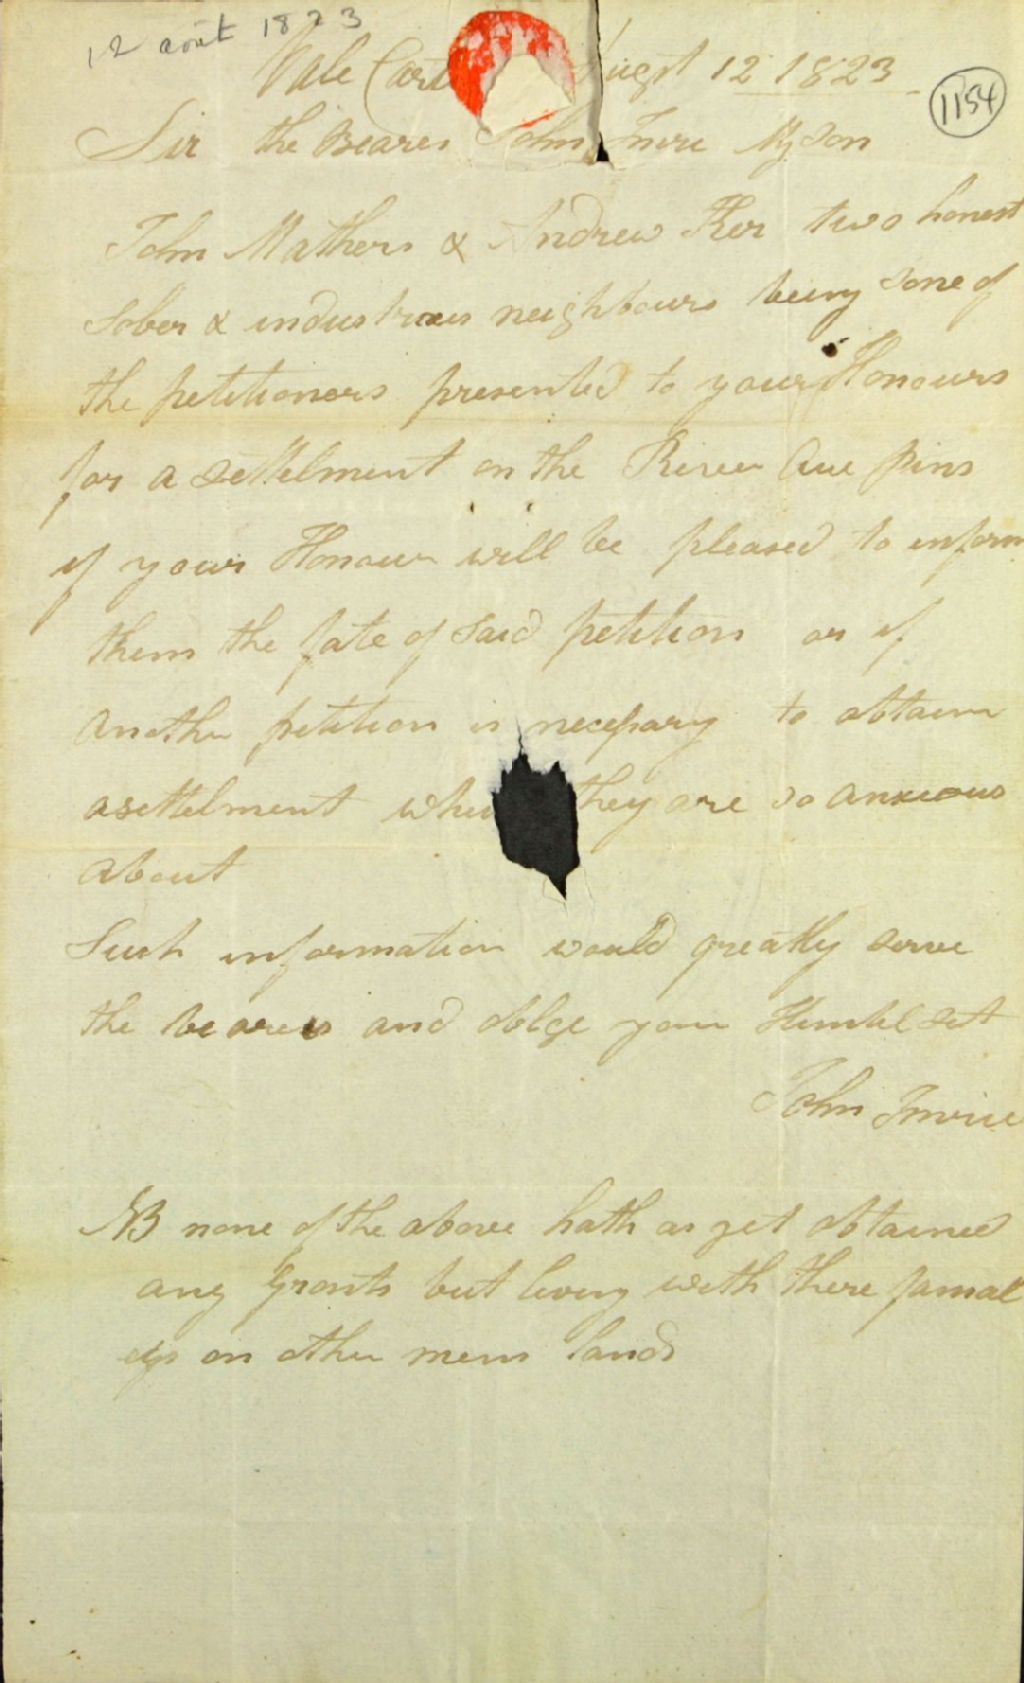 12 août 1823
Vale Cart ugst 12 1823
1154
Sir the Bearer John Irvire My Son
John Mathers & Andrew Ker two honest
Sober & industrous neighbours being Sone of
the petitioners presented to your Honours
for a settelment on the River aue pins
if your Honour will be pleased to inform
them the fate of said petition or if
Another petition is necessary to obtain
asettelment whi they are so anxious
about
Such information would greatly serve
the bearers and oblge your Humbel sert
John Irvine
NB none of the above hath as yet obtained
any Grants but living with there famal
eys on other mens lands